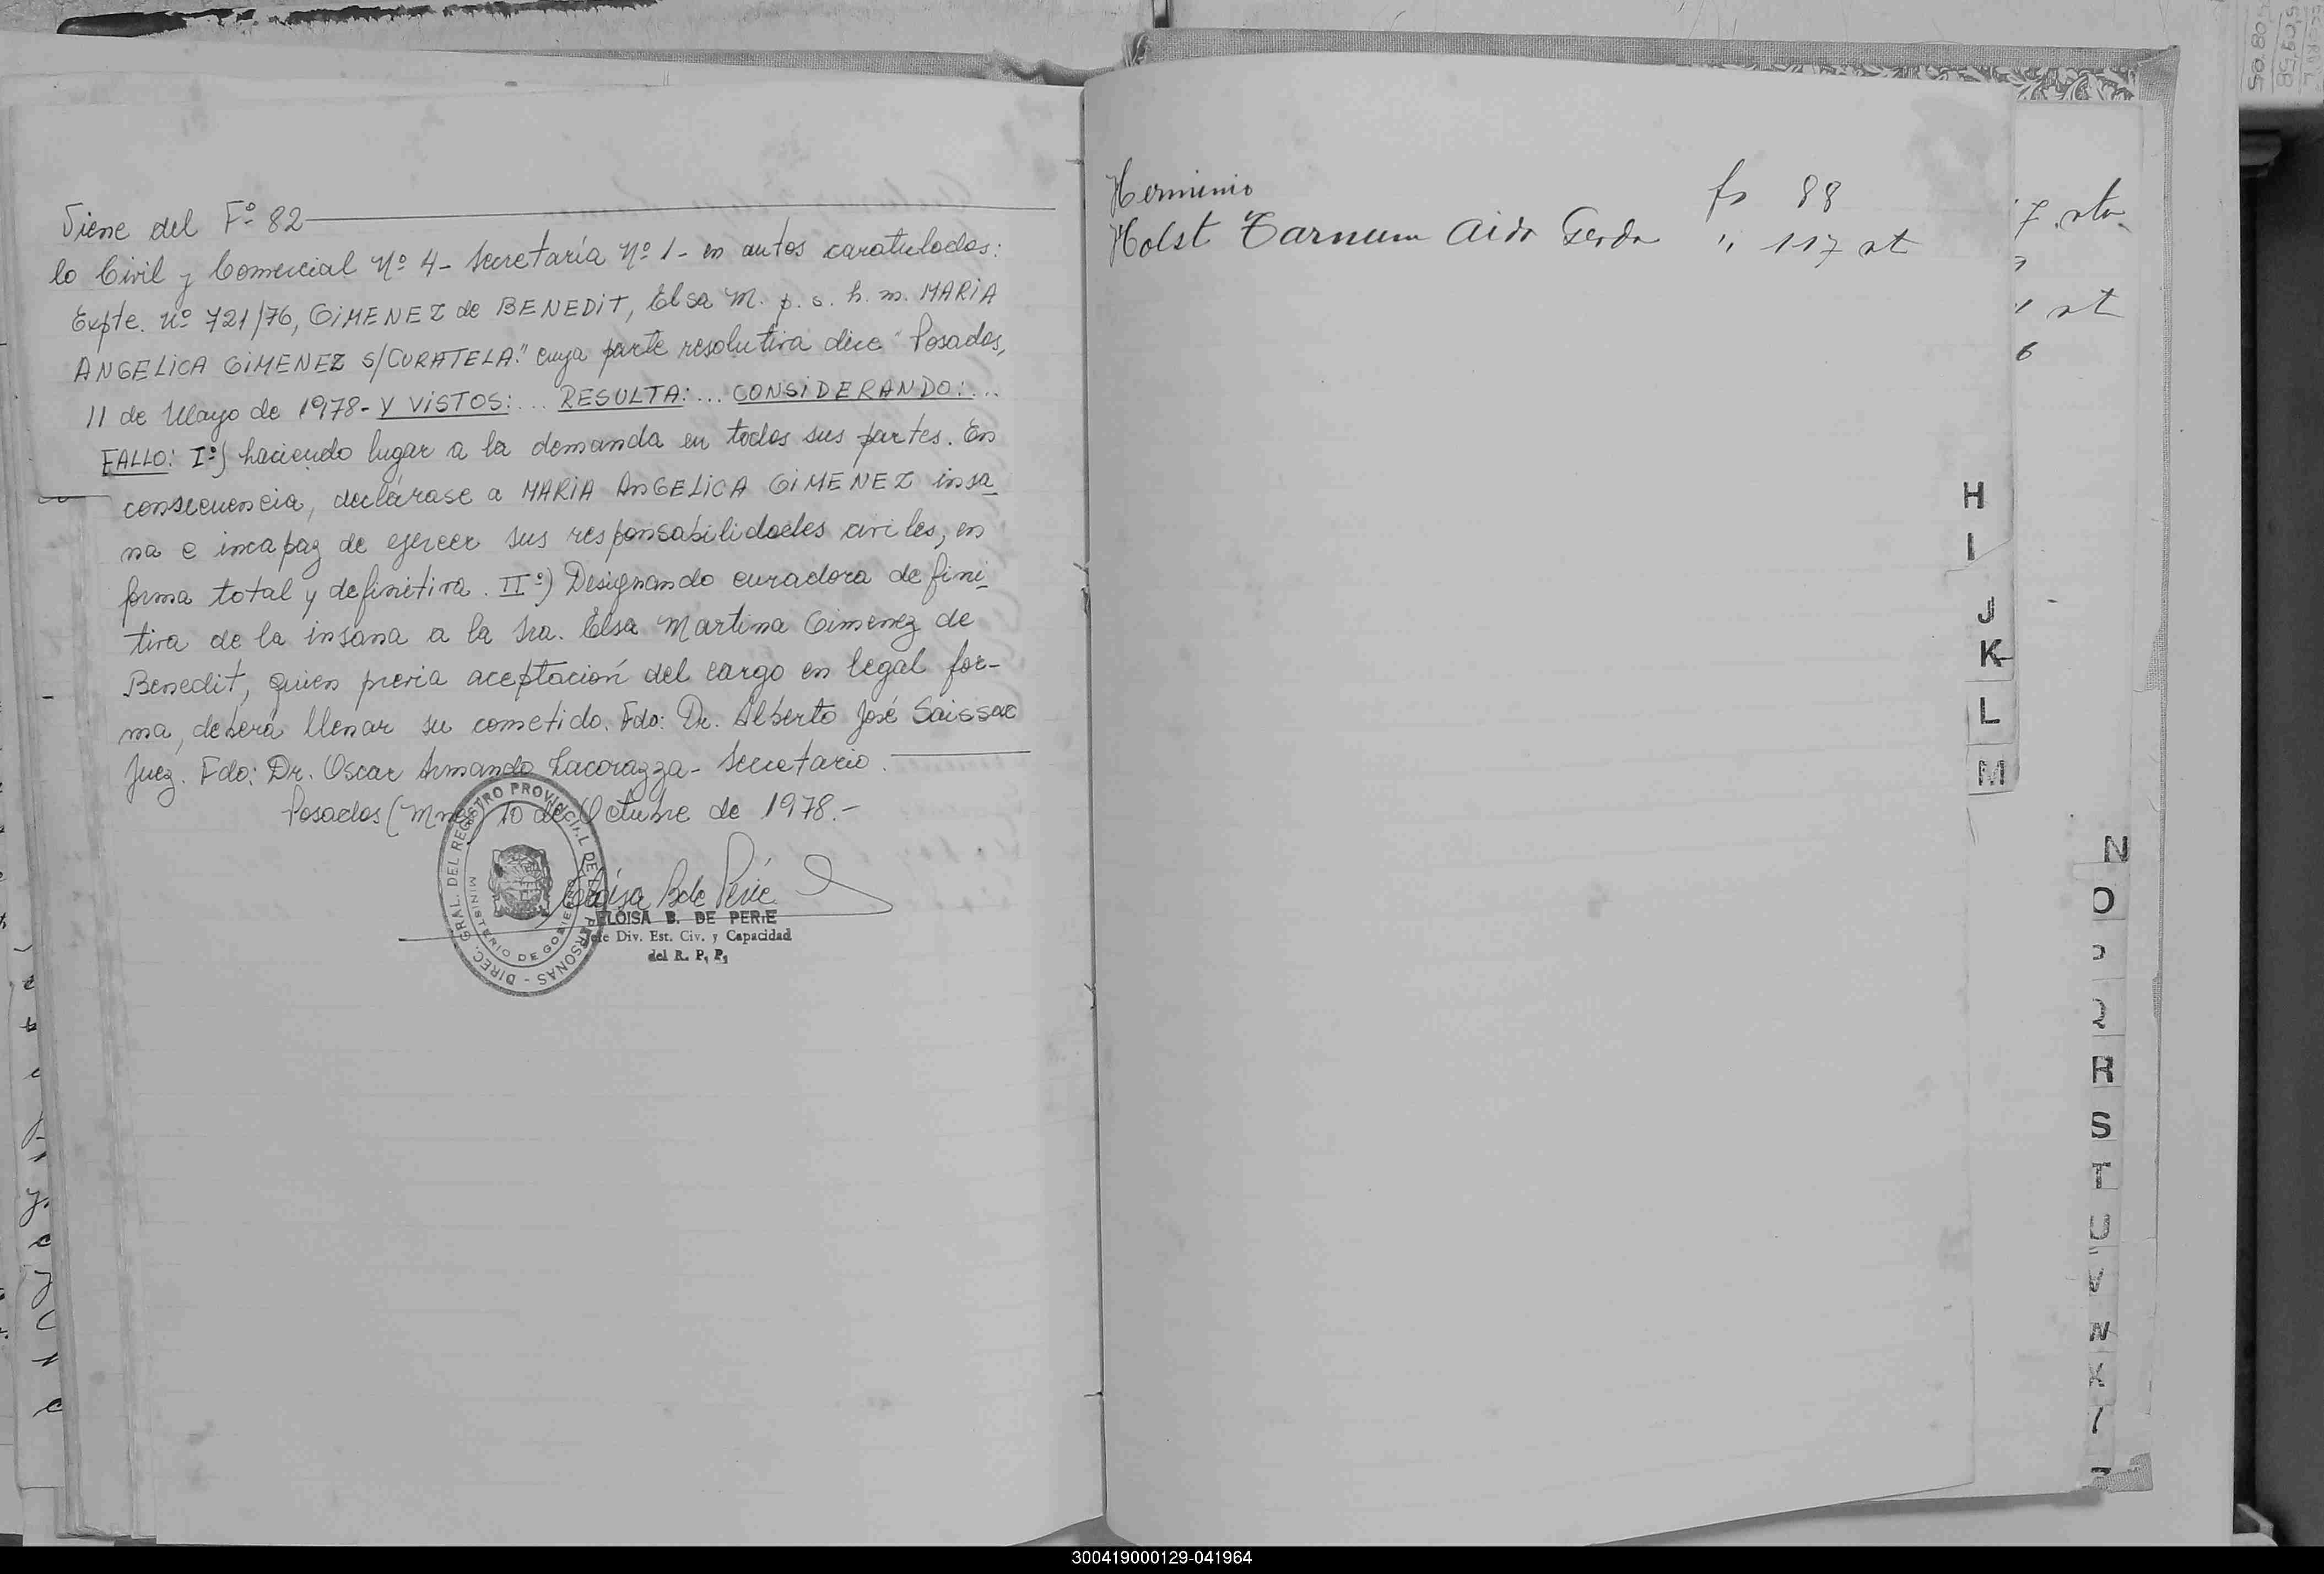 Viene del Fº 82
lo Civil y Comercial Nº 4- Secretaría Nº 1- en autos caratulados:
Expte. Nº 721/76, GIMENEZ de BENEDIT, Elsa M. p. s. h. m. MARIA
ANGELICA GIMENEZ S/CURATELA." cuya parte resolutiva dice "Posadas,
11 de Mayo de 1978- Y VISTOS:... RESULTA:... CONSIDERANDO:...
FALLO: Iº) haciendo lugar a la demanda en todas sus partes. En
consecuencia, declárase a MARIA ANGELICA GIMENEZ insa-
na e incapaz de ejercer sus responsabilidades civiles, en
forma total y definitiva. IIº) Designando curadora defini-
tiva de la insana a la Sra. Elsa Martina Gimenez de
Benedit, quien previa aceptación del cargo en legal for-
ma, deberá llenar su cometido. Fdo: Dr. Alberto José Saissac
Juez. Fdo: Dr. Oscar Armando Lacorazza- Secretario.
Posadas (Mnes) 10 de Octubre de 1978.-
DIREC. GRAL. DEL REGISTRO PROVINCIAL DE PERSONAS -
MINISTERIO DE GOBIERNO
Eloisa B de Perié
ELOISA B. DE PERIE
Jefe Div. Est. Civ. y Capacidad
del R. P. P.
Herminio fs 88
Holst Tarnum Aida Gerda " 117 vt
7 vta.
1 vt
6
H
I
J
K
L
M
N
O
P
Q
R
S
T
U
V
W
X
Y
Z
300419000129-041964